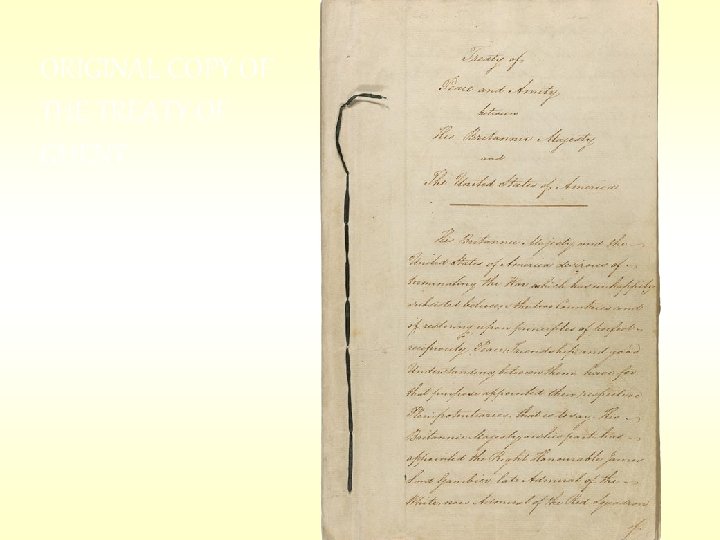 ORIGINAL COPY OF
THE TREATY OF
GHENT
Treaty of
Peace and Amity
between
His Britannic Majesty
and
The United States of America
His Britannic Majesty and the
United States of America desirous of
terminating the War which has unhappily
subsisted between the two Countries and
of restoring upon principles of perfect
reciprocity, Peace, Friendship, and good
Understanding between them, have for
that purpose appointed their respective
Plenipotentiaries, that is to say, His
Britannic Majesty on his part has
appointed the Right Honourable James
Lord Gambier late Admiral of the
White now Admiral of the Red Squadron
of